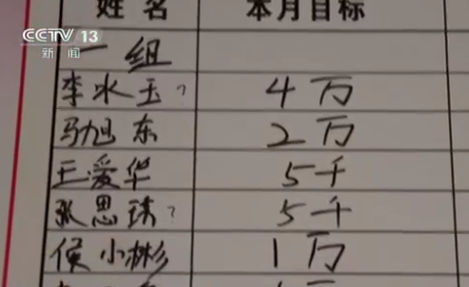 姓名 本月目标
CCTV 13
新闻
一组
李水玉? 4万
马旭东 2万
王爱华 5千
张思琪? 5千
侯小彬 1万